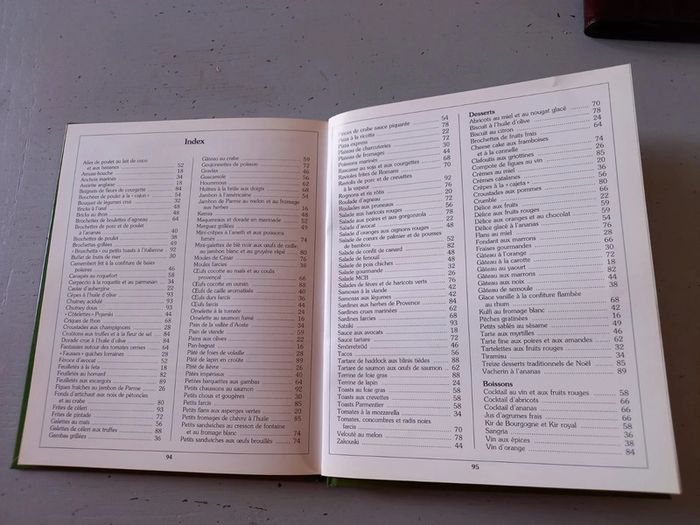 Index
Ailes de poulet au lait de coco
et aux bananes 52
Amuse-bouche 18
Anchois marinés 34
Assiette anglaise 18
Beignets de fleurs de courgette 84
Bouchées de poulet à la « raïon » 54
Bouquet de légumes crus 32
Bricks à l'œuf
Bricks au thon
Brochettes de boulettes d'agneau 64
Brochettes de porc et de poulet
à l'ananas 40
Brochettes de poulet 38
Brochettes grillées 49
« Bruschetta » ou petits toasts à l'italienne 92
Buffet de fruits de mer 30
Camembert lié à la confiture de baies
polaires 46
Canapés au roquefort 58
Carpaccio à la roquette et au parmesan 34
Caviar d'aubergine 22
Cèpes à l'huile d'olive 93
Chutney acidulé 93
Chutney doux 93
« Côtelettes » Pojarski 44
Criques de thon 68
Croustades aux champignons 28
Crudités aux truffes et à la fleur de sel 84
Durade crue à l'huile d'olive 84
Fantaisies autour des tomates cerises 64
« Fausses » quiches lorraines 28
Féroce d'avocat 52
Feuilletés à la feta 18
Feuilletés au homard 82
Feuilletés aux escargots 89
Figues fraîches au jambon de Parme 26
Fonds d'artichaut aux noix de pétoncles
et au crabe 80
Frites de céleri 93
Frites de pintade 72
Galettes au maïs 56
Galettes de céleri aux truffes 88
Gambas grillées 36
94
Gâteau au crabe 59
Goujonnettes de poisson 72
Gravlax 46
Guacamole 56
Hoummous 62
Huîtres à la brûle aux doigts 68
Jambon à l'américaine 54
Jambon de Parme au melon et au fromage
aux herbes 16
Kemia 48
Maquereaux et dorade en marinade 50
Merguez grillées 50
Mini-crêpes à l'aneth et aux poissons
fumés 74
Mini-galettes de blé noir aux œufs de caille,
au jambon blanc et au gruyère râpé 80
Moules de César 76
Moules farcies 38
Œufs cocotte au maïs et au coulis
provençal 66
Œufs cocotte en oursin 88
Œufs de caille aromatisés 40
Œufs durs farcis 36
Œufs farcis 44
Omelette à la tomate 24
Omelette au saumon fumé 16
Pain de la vallée d'Aoste 34
Pain de viande 59
Pains aux olives 22
Pan-bagnat 16
Pâté de foies de volaille 28
Pâté de lapin en croûte 89
Pâté de lièvre 26
Pâtés impériaux 40
Petites barquettes aux gambas 64
Petits chaussons au saumon 92
Petits choux et gougères 30
Petits farcis 50
Petits flans aux asperges vertes 20
Petits fromages de chèvre à l'huile 34
Petits sandwiches au cresson de fontaine
et au fromage blanc 74
Petits sandwiches aux œufs brouillés 74
Pinces de crabe sauce piquante 54
Pizza à la ricotta 78
Pizza express 22
Plateau de charcuteries 72
Plateau de fromages 30
Poissons marinés 44
Rascasse au sojs et aux courgettes 68
Ravioles frites de Romans 70
Raviolis de porc et de crevettes
à la vapeur 92
Rognons et ris rôtis 76
Roulade d'agneau 20
Roulades aux pruneaux 72
Salade aux haricots rouges 56
Salade aux poires et aux gorgonzola 26
Salade d'avocat 72
Salade d'oranges aux oignons rouges 48
Salade de cœurs de palmier et de pousses
de bambou 52
Salade de confit de canard 82
Salade de fenouil 38
Salade de pois chiches 48
Salade gourmande 32
Salade MCB 16
Salades de fèves et de haricots verts 76
Samosas à la viande 42
Samosas aux légumes 42
Sardines aux herbes de Provence 84
Sardines crues marinées 38
Sardines farcies 68
Satsiki 93
Sauce aux avocats 18
Sauce tartare 72
Smörrebröd 46
Tacos 56
Tartare de haddock aux blinis tièdes 88
Tartare de saumon aux œufs de saumon 62
Terrine de foie gras 88
Terrine de lapin 24
Toasts au foie gras 58
Toasts aux crevettes 58
Toasts Parmentier 58
Tomates à la mozzarella 34
Tomates, concombres et radis noirs
farcis 70
Velouté au melon 78
Zakouski 44
95
Desserts
Abricots au miel et au nougat glacé 70
Biscuit à l'huile d'olive 78
Biscuit au citron 24
Brochettes de fruits frais 64
Cheese cake aux framboises
et à la cannelle 74
Clafoutis aux griottines 85
Compote de figues au vin 26
Crèmes au miel 30
Crèmes catalanes 56
Crêpes à la « cajeta » 80
Croustades aux pommes 66
Crumble 22
Délice aux fruits 59
Délice aux fruits rouges 59
Délice aux oranges et au chocolat 54
Flans au miel 28
Fondant aux marrons 66
Fruits gourmands 72
Gâteau à l'orange 30
Gâteau à la carotte 18
Gâteau au yaourt 18
Gâteau aux marrons 82
Gâteau aux noix 44
Gâteau de semoule 38
Glace vanille à la confiture flambée
au rhum 68
Kulfi au fromage blanc 42
Pêches gratinées 16
Petits sablés au sésame 49
Tarte aux myrtilles 46
Tarte fine aux poires et aux amandes 62
Tartelettes aux Fruits rouges 32
Tiramisu 34
Treize desserts traditionnels de Noël 85
Vacherin à l'ananas 89
Boissons
Cocktail au vin et aux fruits rouges 58
Cocktail d'abricots 66
Cocktail d'ananas 66
Jus d'agrumes frais 66
Kir de Bourgogne et Kir royal 58
Sangria 58
Vin aux épices 36
Vin d'orange 38
84